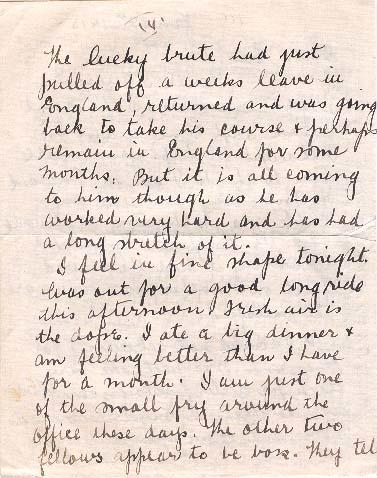 "4"
The lucky brute had just
pulled off a weeks leave in
England, returned and was going
back to take his course & perhaps
remain in England for some
months. But it is all coming
to him though as he has
worked very hard and has had
a long stretch of it.
I feel in fine shape tonight.
Was out for a good long ride
this afternoon. Fresh air is
the dope. I ate a big dinner &
am feeling better than I have
for a month. I am just one
of the small fry around the
office these days. The other two
fellows appear to be boss. They tel